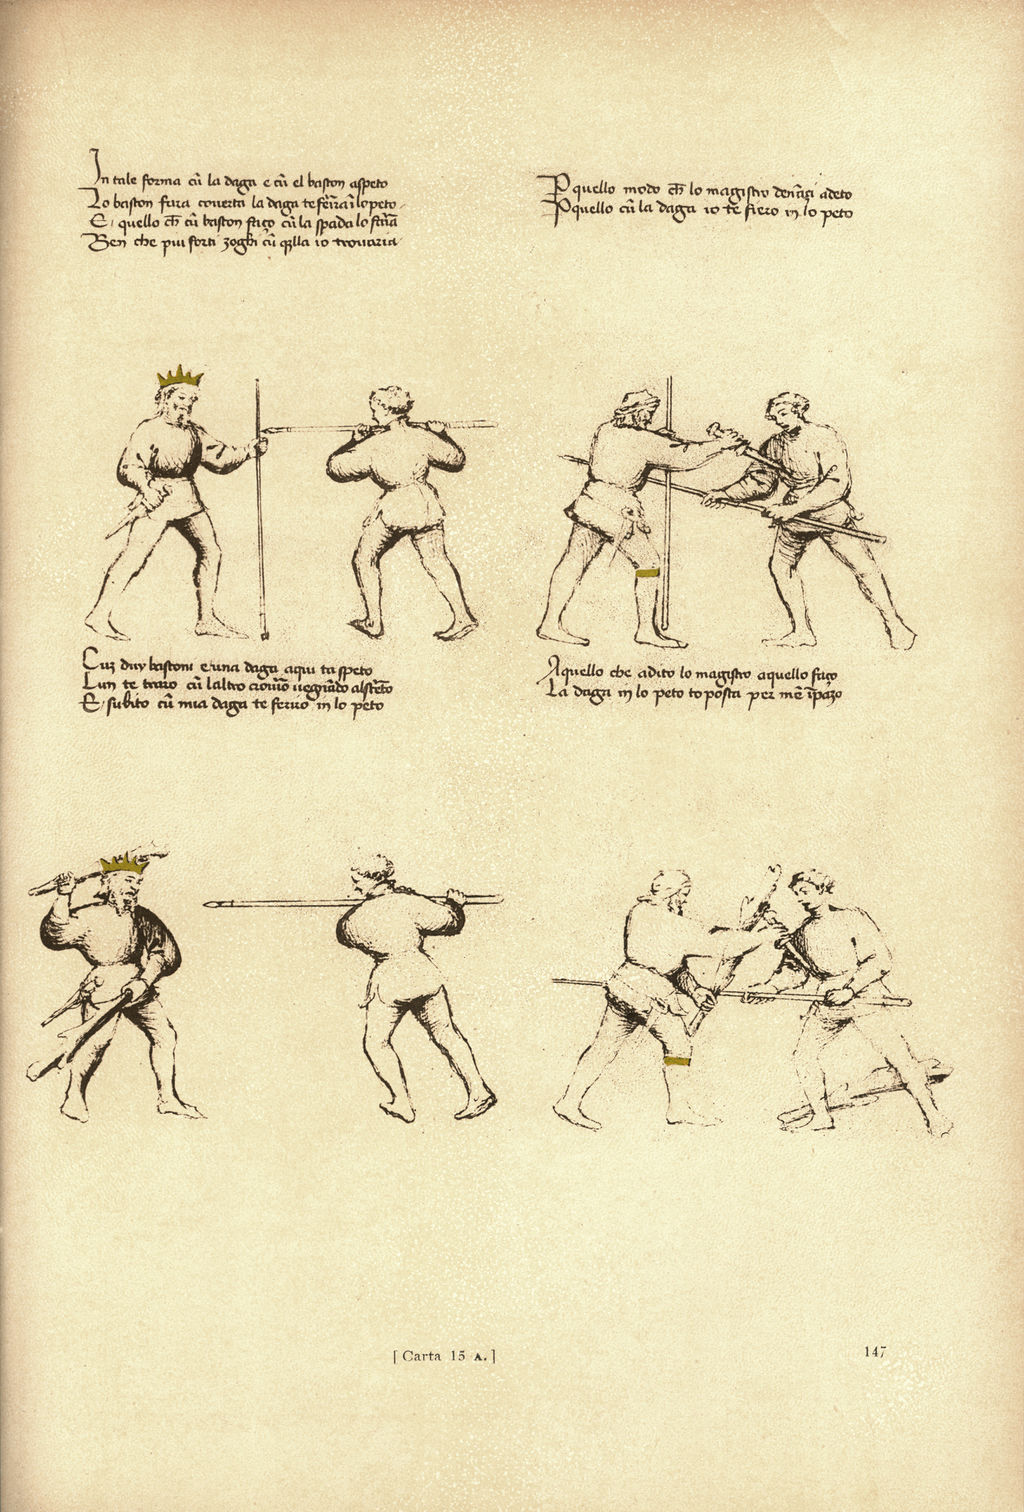 In tale forma cū la daga e cū el baston aspeto
Lo baston fara coverta la daga te ferirà ī lo peto
E, quello ch̄ cū baston faço cū la spada lo faria
Ben che piu forti zoghi cū q̄lla io trovaria
P quello modo ch̄ lo magistro denāzi a deto
P quello cū la daga io te fiero in lo peto
Cuz duy bastoni e una daga aqui ta speto
Lun te traro cū laltro
E, subito cū mia daga te fervo in lo peto
Aquello che a dito lo magistro aquello faço
La daga in lo peto to posta per mē īpazo
[Carta 15 A.]
147